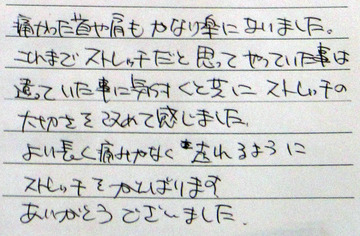 痛かった首や肩もかなり楽になりました。
これまでストレッチだと思ってやっていた事は
違っていた事に気付くと共にストレッチの
大切さを改めて感じました。
よい長く痛みなく走れるように
ストレッチをがんばります
ありがとうございました。